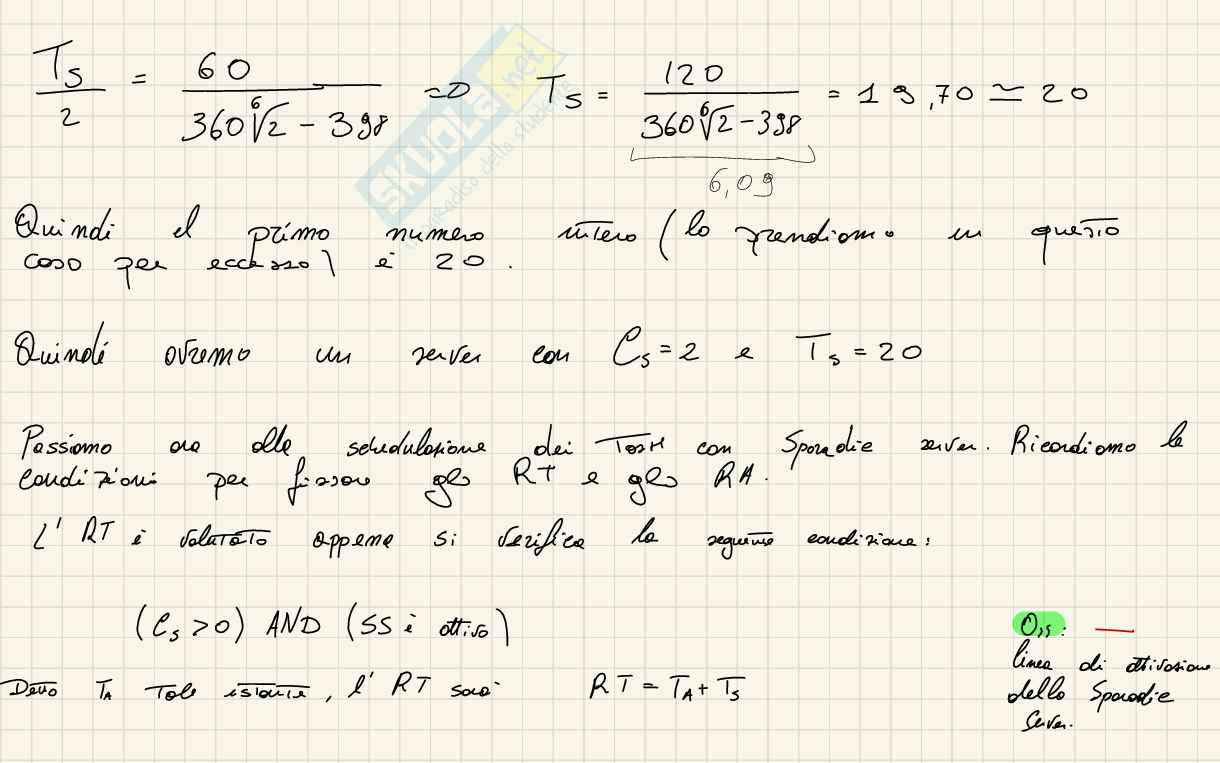 T_S / 2 = 60 / (360 ⁶√2 - 398) => T_S = 120 / (360 ⁶√2 - 398) = 19,70 ≃ 20
6,09
SKUOLA.net
il paradiso dello studente
Quindi il primo numero intero (lo prendiamo in questo
caso per eccesso) è 20.
Quindi avremo un server con C_S = 2 e T_S = 20
Passiamo ora alla schedulazione dei Task con Sporadic server. Ricordiamo le
condizioni per fissare gli RT e gli RA.
L'RT è valutato appena si verifica la seguente condizione:
(C_S > 0) AND (SS è attivo)
Oss:
linea di attivazione
dello Sporadic
Server.
Detto T_A tale istante, l'RT sarà RT = T_A + T_S